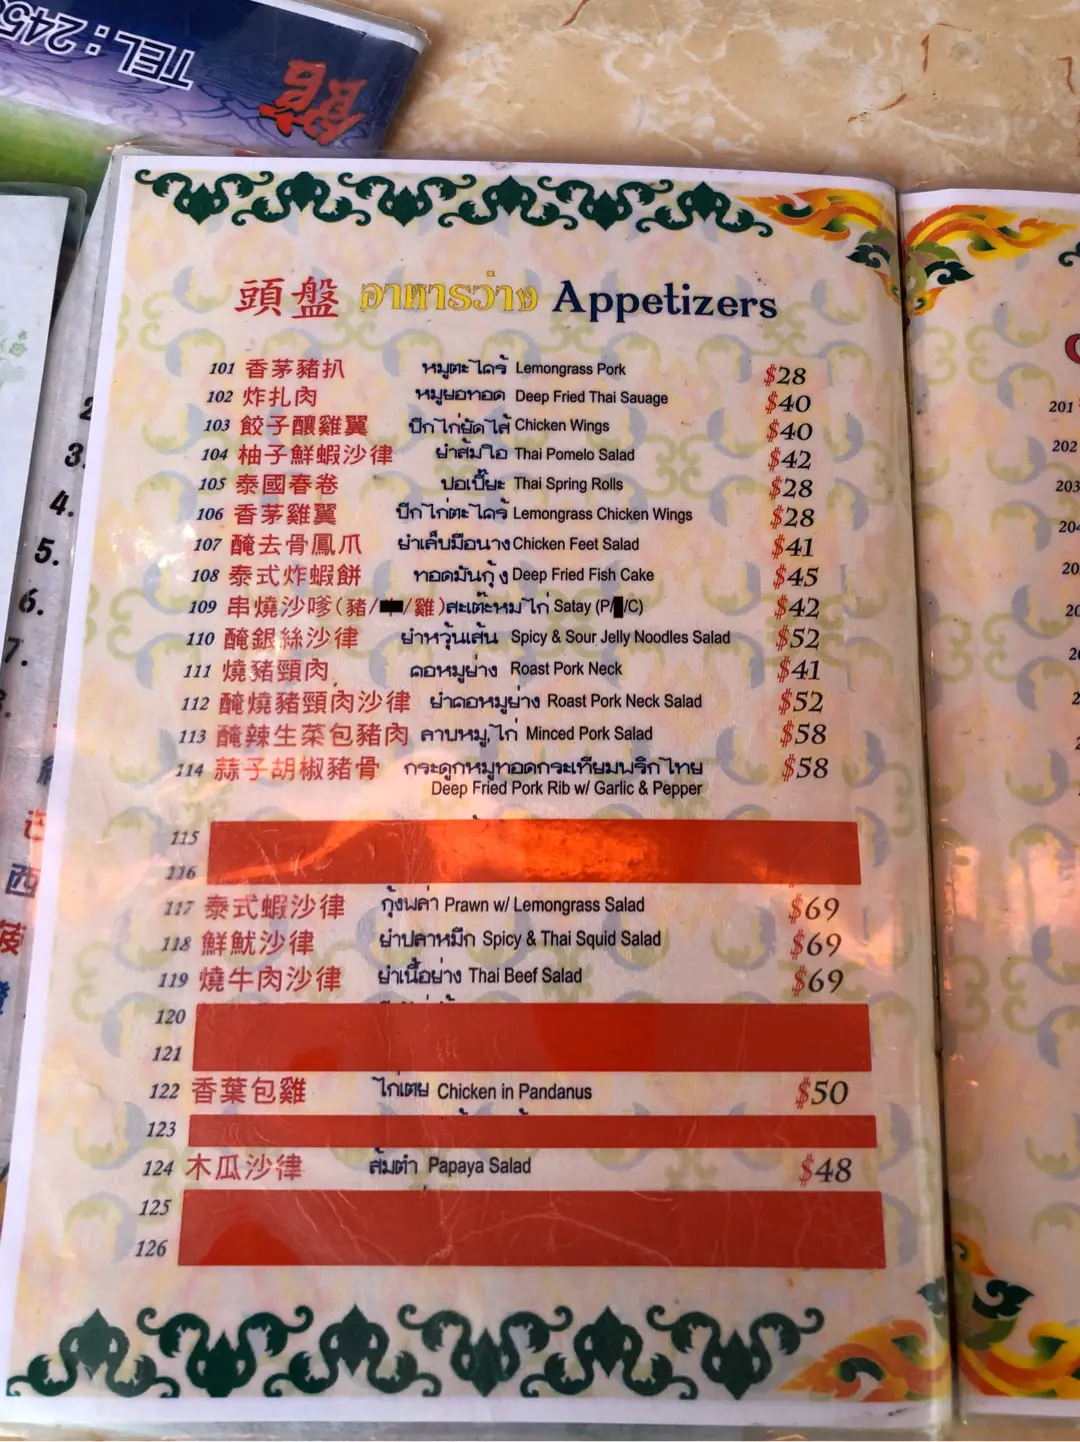 TEL : 245
館
頭盤 อาหารว่าง Appetizers
101 香茅豬扒 หมูตะไคร้ Lemongrass Pork $28
102 炸扎肉 หมูยอทอด Deep Fried Thai Sauage $40
103 餃子釀雞翼 ปีกไก่ยัดไส้ Chicken Wings $40
104 柚子鮮蝦沙律 ยำส้มโอ Thai Pomelo Salad $42
105 泰國春卷 ปอเปี๊ยะ Thai Spring Rolls $28
106 香茅雞翼 ปีกไก่ตะไคร้ Lemongrass Chicken Wings $28
107 醃去骨鳳爪 ยำเล็บมือนาง Chicken Feet Salad $41
108 泰式炸蝦餅 ทอดมันกุ้ง Deep Fried Fish Cake $45
109 串燒沙嗲(豬/ /雞) สะเต๊ะหมูไก่ Satay (P/ /C) $42
110 醃銀絲沙律 ยำหวุ้นเส้น Spicy & Sour Jelly Noodles Salad $52
111 燒豬頸肉 คอหมูย่าง Roast Pork Neck $41
112 醃燒豬頸肉沙律 ยำคอหมูย่าง Roast Pork Neck Salad $52
113 醃辣生菜包豬肉 ลาบหมู,ไก่ Minced Pork Salad $58
114 蒜子胡椒豬骨 กระดูกหมูทอดกระเทียมพริกไทย $58
Deep Fried Pork Rib w/ Garlic & Pepper
115
116
117 泰式蝦沙律 กุ้งพล่า Prawn w/ Lemongrass Salad $69
118 鮮魷沙律 ยำปลาหมึก Spicy & Thai Squid Salad $69
119 燒牛肉沙律 ยำเนื้อย่าง Thai Beef Salad $69
120
121
122 香葉包雞 ไก่เตย Chicken in Pandanus $50
123
124 木瓜沙律 ส้มตำ Papaya Salad $48
125
126
3.
4.
5.
6.
7.
西
201
202
203
204